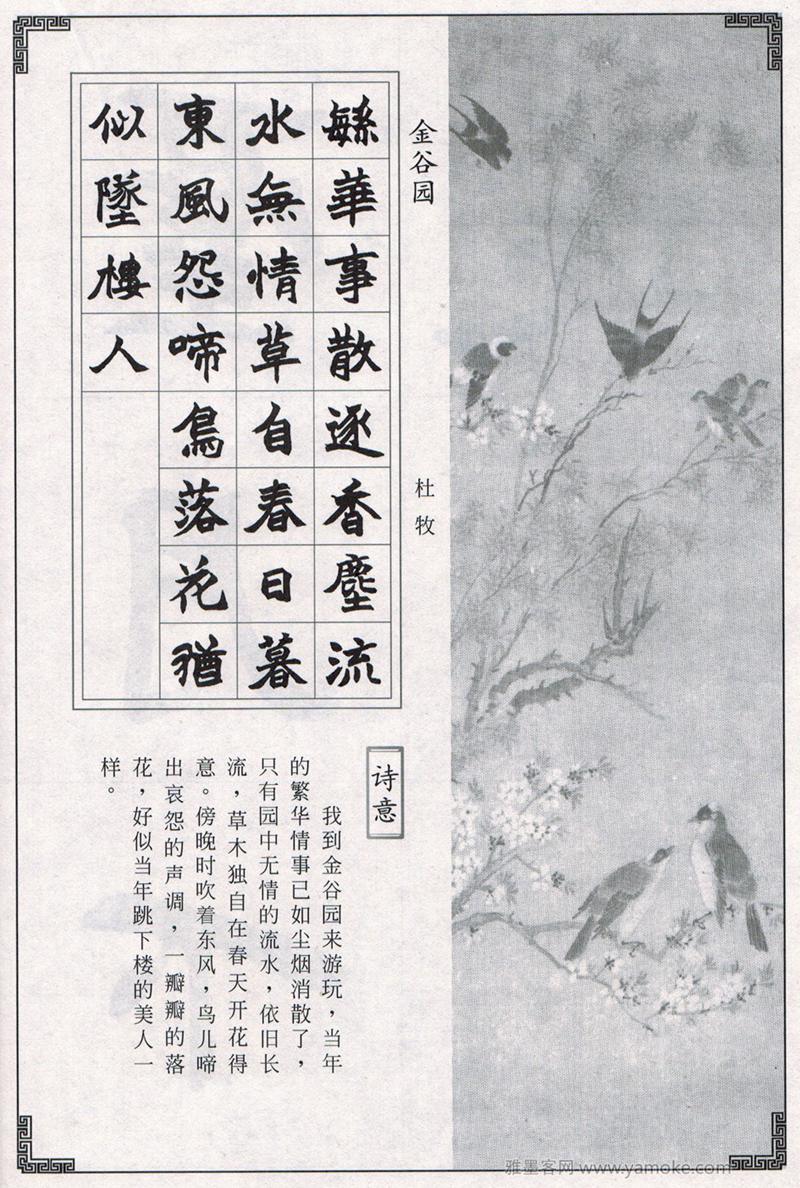 金谷园
杜牧
繇華事散逐香塵流
水無情草自春日暮
東風怨啼鳥落花猶
似墜樓人
诗意
我到金谷园来游玩，当年
的繁华情事已如尘烟消散了，
只有园中无情的流水，依旧长
流，草木独自在春天开花得
意。傍晚时吹着东风，鸟儿啼
出哀怨的声调，一瓣瓣的落
花，好似当年跳下楼的美人一
样。
雅墨客网-www.yamoke.com